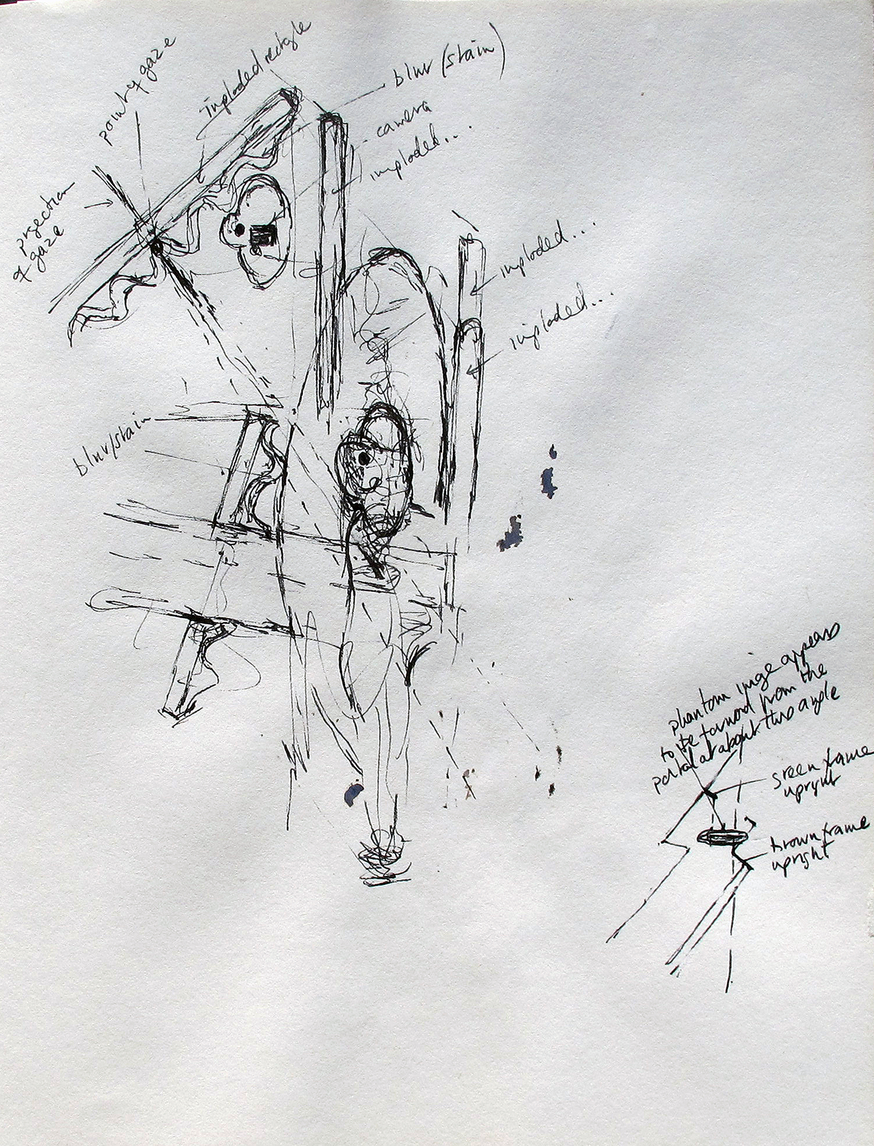 point of gaze
imploded rectgle
blur (stain)
camera
imploded...
projection
of gaze
imploded...
imploded...
blur/stain
phantom image appears
to be formed from the
portal at about this angle
green frame
upright
brown frame
upright